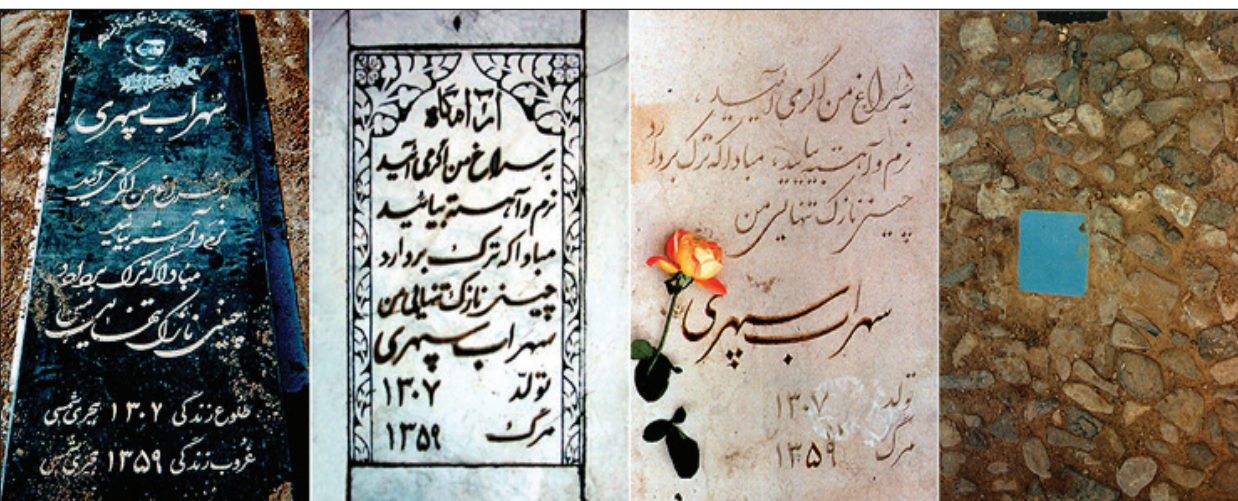 سهراب سپهری
به سراغ من اگر می آئید
نرم و آهسته بیائید
مبادا که ترک بردارد
چینی نازک تنهایی
طلوع زندگی ۱۳۰۷ هجری شمسی
غروب زندگی ۱۳۵۹ هجری شمسی
آرامگاه
به سراغ من اگر می آئید
نرم و آهسته بیائید
مبادا که ترک بردارد
چینی نازک تنهایی من
سهراب سپهری
تولد ۱۳۰۷
مرگ ۱۳۵۹
به سراغ من اگر می آیید،
نرم و آهسته بیایید، مبادا که ترک بردارد
چینی نازک تنهایی من
سهراب سپهری
تولد ۱۳۰۷
مرگ ۱۳۵۹